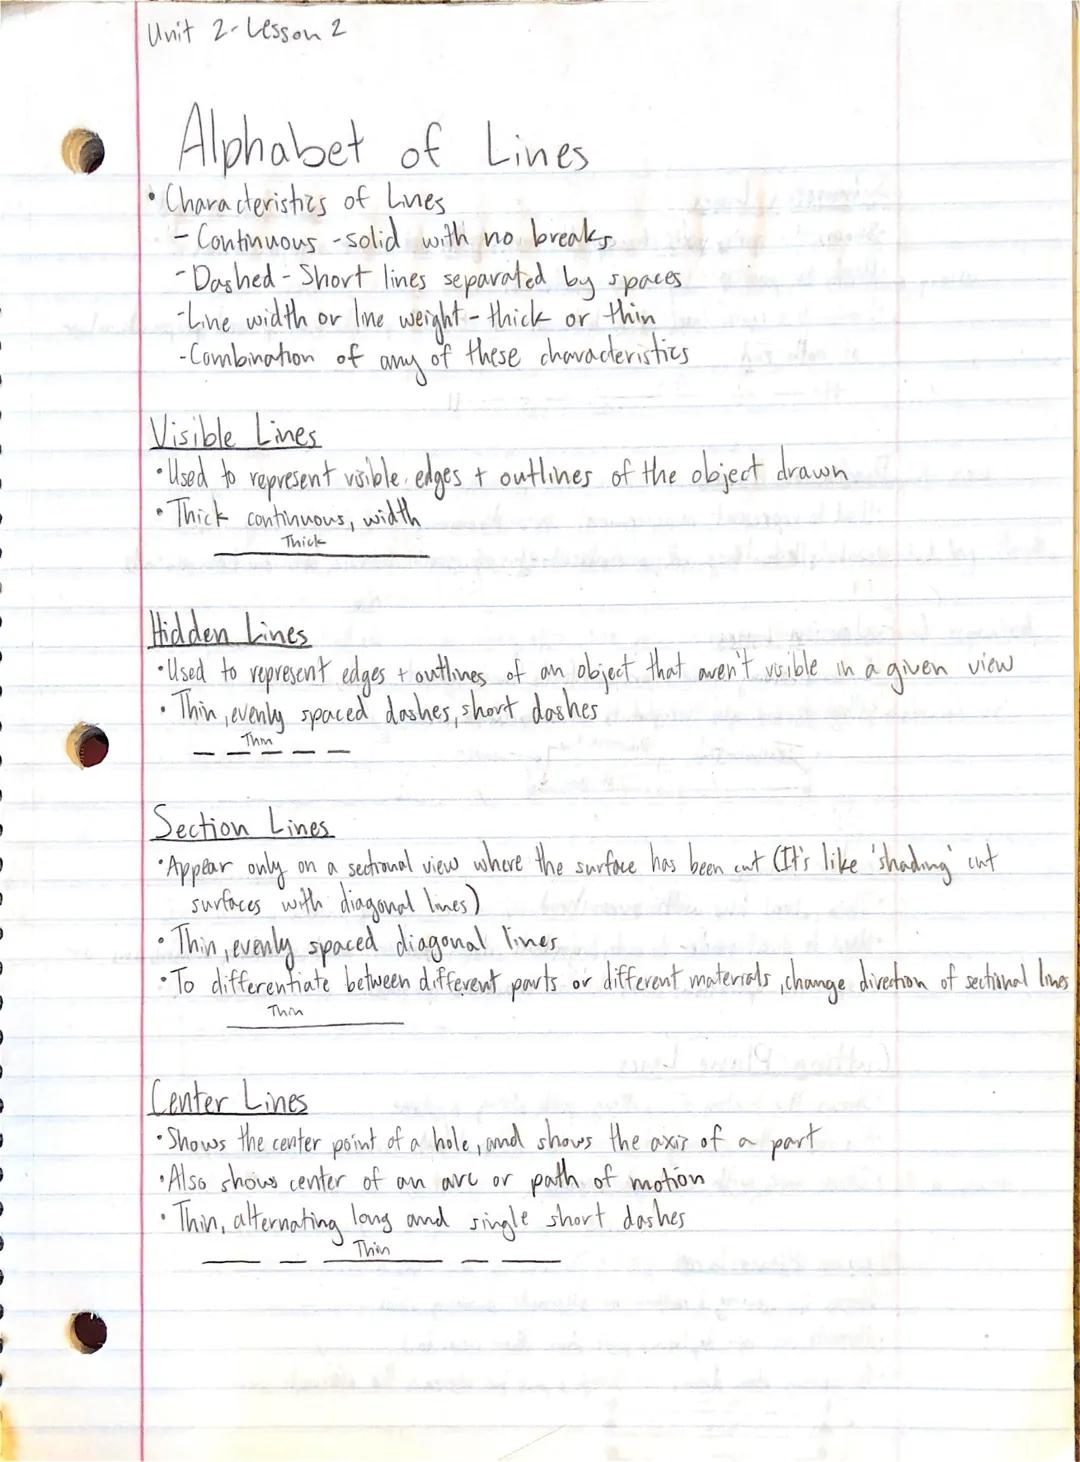 Unit 2-Lesson 2
Alphabet of Lines
• Characteristics of Lines
- Continuous - solid with no breaks
- Dashed - Short lines separated by spaces
- Line width or line weight - thick or thin
- Combination of any of these characteristics
Visible Lines
• Used to represent visible edges + outlines of the object drawn
• Thick continuous, width
Thick
Hidden Lines
• Used to represent edges + outlines of an object that aren't visible in a given view
• Thin, evenly spaced dashes, short dashes
Thin
Section Lines
• Appear only on a sectional view where the surface has been cut (It's like 'shading' cut
surfaces with diagonal lines)
• Thin, evenly spaced diagonal lines
• To differentiate between different parts or different materials, change direction of sectional lines
Thin
Center Lines
• Shows the center point of a hole, and shows the axis of a part
• Also shows center of an arc or path of motion
• Thin, alternating long and single short dashes
Thin